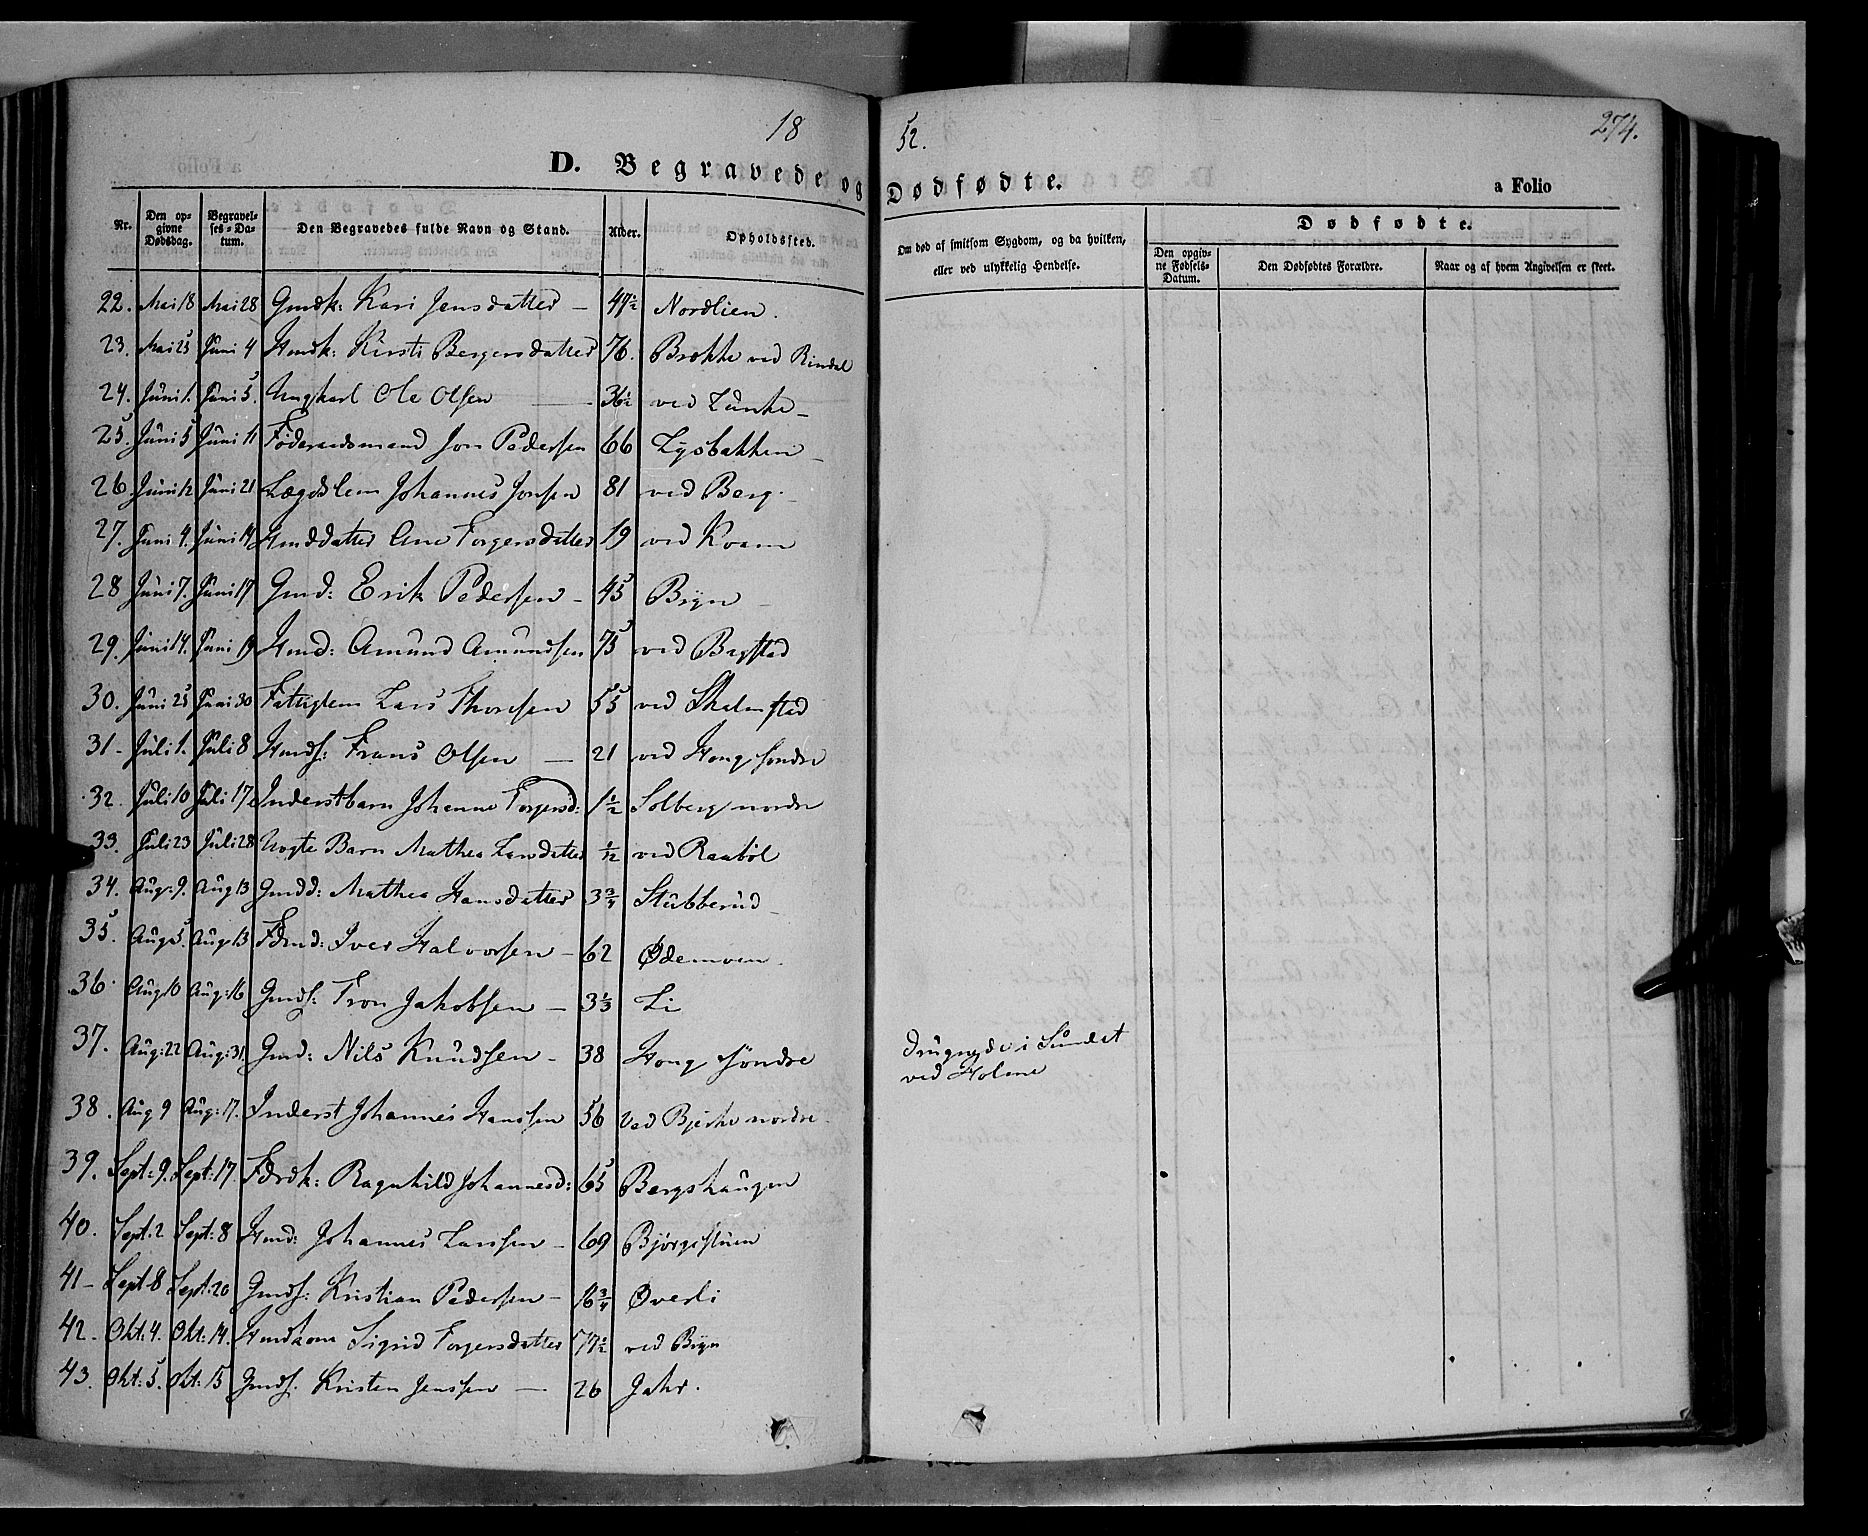 18
52.
274.
D. Begravede og
Dødfødte.
a Folio
Nr.
Den op-
givne
Dødsdag.
Begravel-
ses-Da-
tum.
Den Begravedes fulde Navn og Stand.
Alder.
Opholdssted.
Om død af smitsom Sygdom, og da hvilken,
eller ved ulykkelig Hendelse.
Dødfødte.
Den opgiv-
ne Fødsels-
Datum.
Den Dødfødtes Forældre.
Naar og af hvem Angivelsen er skeet.
22. Mai 18 Mai 28 Gmdk: Kari Jensdatter — 47½ Nordlien.
23. Mai 25 Juni 4 Hmdk: Kirsti Bergersdatter 76. Brække ved Rindal
24. Juni 1. Juni 5. Ungkarl Ole Olsen — 36½ ved Lunke
25. Juni 5 Juni 11 Föderaadsmand Jon Pedersen 66 Lysbakken
26 Juni 12 Juni 21 Lægdslem Johannes Jonsen 81 ved Berg.
27. Juni 4. Juni 14 Hmddatter Ane Torgersdatter 19 ved Kvam
28 Juni 7. Juni 17 Gmd: Erik Pedersen — 45 Bryn
29. Juni 14. Juni 19 Hmd: Amund Amundsen 75 ved Bagstad
30. Juni 25 Juni 30 Fattiglem Lars Thoresen 55 ved Skalmstad
31 — Juli 1. Juli 8 Hmds: Frans Olsen — 21 ved Houg söndre
32. Juli 10 Juli 17 Inderstbarn Johanne Torgersd: 1½ Solberg nordre
33. Juli 23 Juli 28 Uægte Barn Mathea Larsdatter 1/12 ved Raaböl
34. Aug: 9. Aug 13 Gmdd: Mathea Hansdatter 3¾ Stubberud
35. Aug: 5. Aug: 13 Fdrmd: Iver Halvorsen — 62 Ødemoen.
36 Aug: 10 Aug: 16 Gmds: Tron Jakobsen — 3⅓ Li
37. Aug: 22 Aug: 31. Gmd: Nils Knudsen — 38 Houg söndre Druknede i Sundet
ved Holme
38. Aug 9 Aug: 17. Inderst Johannes Hanssen 56 Ved Bjerke nordre
39. Sept: 9. Sept: 17. Fdrdk: Ragnhild Johannesd: 65 Bergshaugen
40. Sept: 2 Sept: 8 Hmd: Johannes Larssen — 69 Björgestuen
41 — Sept: 8 Sept: 20 Gmds: Kristian Pedersen — 16¾ Øverli
42. Okt: 4. Okt: 14. Hmdkone Sigrid Torgersdatter 57½ ved Bryn
43. Okt: 5. Okt: 15 Gmds. Kristen Jenssen — 26 Jahr.